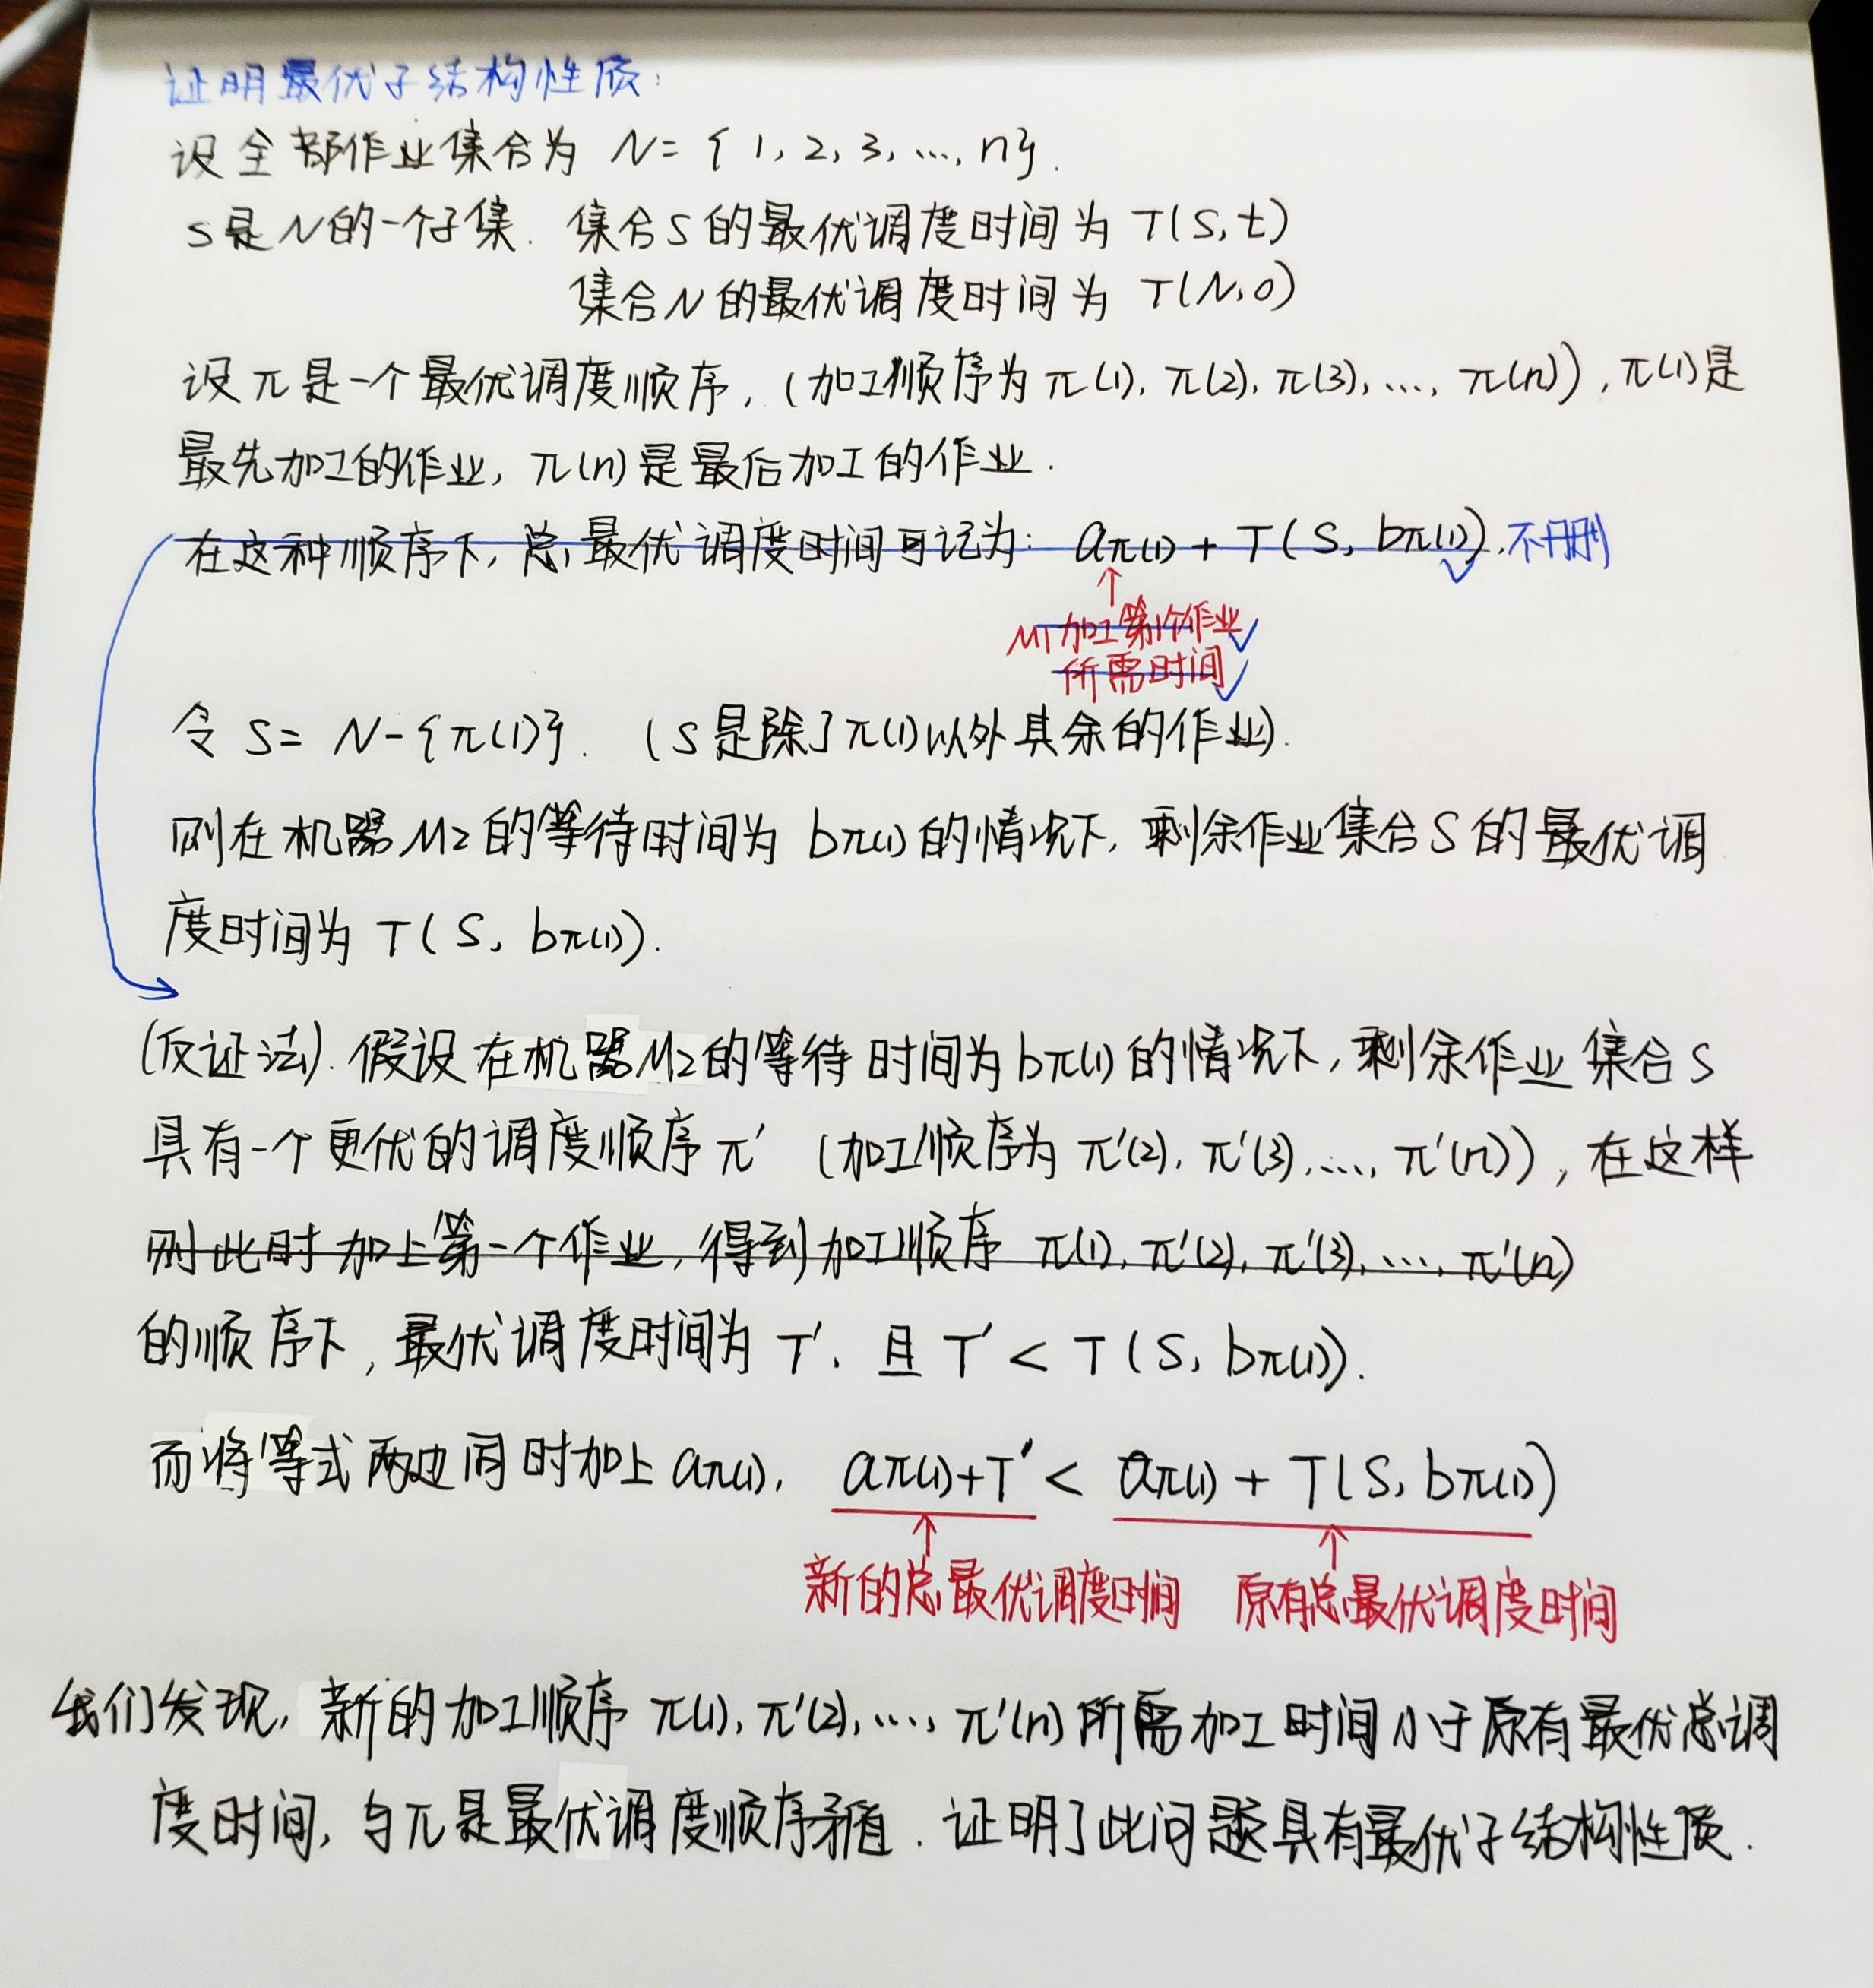 证明最优子结构性质：
设全部作业集合为 N={1,2,3,…,n}.
S是N的一个子集. 集合S的最优调度时间为 T(S,t)
集合N的最优调度时间为 T(N,0)
设π是一个最优调度顺序,(加工顺序为π(1),π(2),π(3),…,π(n)),π(1)是
最先加工的作业,π(n)是最后加工的作业.
在这种顺序下,总最优调度时间可记为: aπ(1)+T(S,bπ(1)).不删
↑
M1加工第1个作业
所需时间
令 S=N-{π(1)}. (S是除了π(1)以外其余的作业).
则在机器M2的等待时间为 bπ(1)的情况下,剩余作业集合S的最优调
度时间为 T(S,bπ(1)).
(反证法).假设在机器M2的等待时间为bπ(1)的情况下,剩余作业集合S
具有一个更优的调度顺序π′ (加工顺序为π′(2),π′(3),…,π′(n)),在这样
则此时加上第一个作业,得到加工顺序 π(1),π′(2),π′(3),…,π′(n)
的顺序下,最优调度时间为T′.且T′<T(S,bπ(1)).
而将等式两边同时加上aπ(1), aπ(1)+T′<aπ(1)+T(S,bπ(1))
↑ ↑
新的总最优调度时间 原有总最优调度时间
我们发现,新的加工顺序π(1),π′(2),…,π′(n)所需加工时间小于原有最优总调
度时间,与π是最优调度顺序矛盾.证明了此问题具有最优子结构性质.